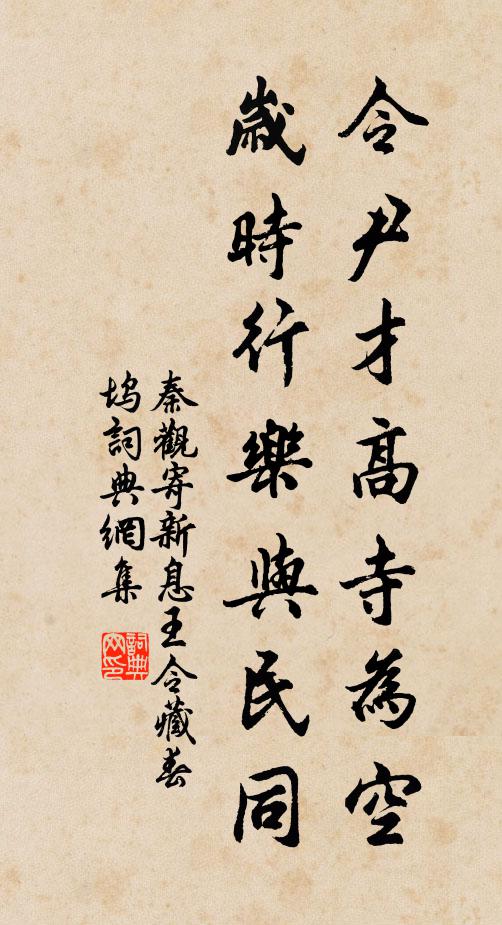 令尹才高寺為空
歲時行樂與民同
秦觀寄新息王令藏春
塢詞典網集
詞典
网印